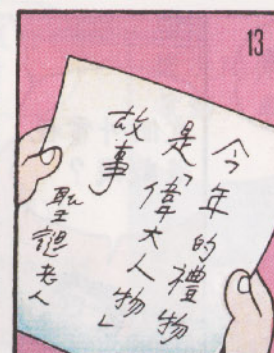 13
今年的禮物
是「偉大人物」
故事
聖誕老人